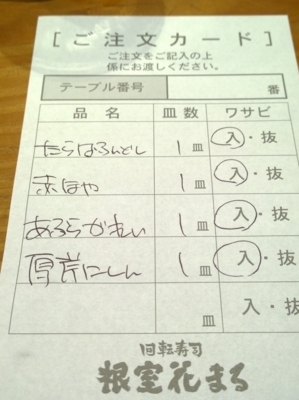 [ご注文カード]
ご注文をご記入の上
係にお渡しください。
テーブル番号 番
品名 皿数 ワサビ
たらばふんどし 1皿 入・抜
赤ほや 1皿 入・抜
あぶらがれい 1皿 入・抜
厚岸にしん 1皿 入・抜
皿 入・抜
回転寿司
根室花まる